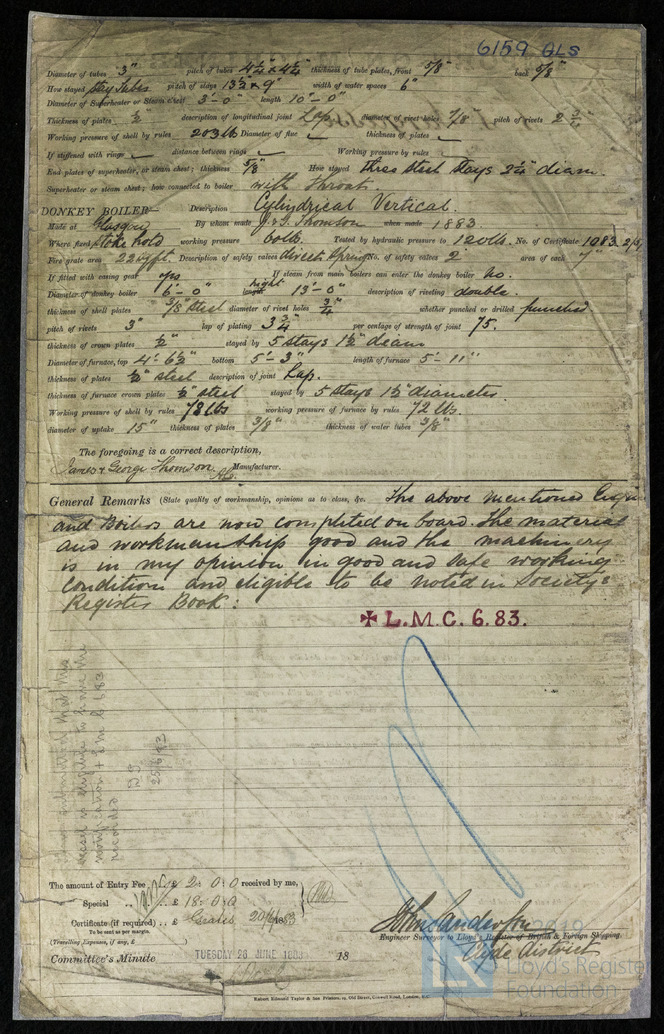 6159 GLS
Diameter of tubes 3" pitch of tubes 4¼ x 4¼" thickness of tube plates, front 5/8" back 5/8"
How stayed stay tubes pitch of stays 13½ x 9" width of water spaces 6"
Diameter of Superheater or Steam chest 3'-0" length 10'-0"
Thickness of plates ½ description of longitudinal joint Lap. diameter of rivet holes 7/8" pitch of rivets 2
Working pressure of shell by rules 203 lb Diameter of flue thickness of plates
If stiffened with rings distance between rings Working pressure by rules
End plates of superheater, or steam chest; thickness 5/8" How stayed three steel stays 2¼" diam.
Superheater or steam chest; how connected to boiler with throat.
DONKEY BOILER— Description Cylindrical Vertical.
Made at Glasgow By whom made J. & G. Thomson when made 1883
Where fixed stoke hold working pressure 60 lb. Tested by hydraulic pressure to 120 lb. No. of Certificate 1083
Fire grate area 22 sq ft. Description of safety valves direct spring No. of safety valves 2 area of each 7"
If fitted with easing gear yes If steam from main boilers can enter the donkey boiler no.
Diameter of donkey boiler 6'-0" length height 13'-0" description of riveting double.
thickness of shell plates 3/8" steel diameter of rivet holes ¾" whether punched or drilled punched
pitch of rivets 3" lap of plating 3¾" per centage of strength of joint 75.
thickness of crown plates ½" stayed by 5 stays 1½" diam
Diameter of furnace, top 4'-6½" bottom 5'-3" length of furnace 5'-11"
thickness of plates ½" steel description of joint Lap.
thickness of furnace crown plates ½" steel stayed by 5 stays 1½" diameter.
Working pressure of shell by rules 78 lbs working pressure of furnace by rules 72 lbs.
diameter of uptake 15" thickness of plates 3/8" thickness of water tubes 3/8"
The foregoing is a correct description,
James & George Thomson. Manufacturer.
General Remarks (State quality of workmanship, opinions as to class, &c. The above mentioned Engin
and Boilers are now completed on board. The material
and workmanship good and the machinery
is in my opinion in good and safe working
condition and eligible to be noted in Society's
Register Book:
✠ L.M.C. 6.83.
The amount of Entry Fee .. £ 2: 0: 0 received by me,
Special .. £ 18: 0: 0
Certificate (if required) .. £ Gratis 20/6/1883
To be sent as per margin.
(Travelling Expenses, if any, £
Committee's Minute TUESDAY 26 JUNE 1883 18
John Sanderson
Engineer Surveyor to Lloyd's Register of British & Foreign Shipping.
Clyde District
Robert Edmund Taylor & Son Printers, 19, Old Street, Goswell Road, London, E.C.
LR
Lloyd's Register
Foundation